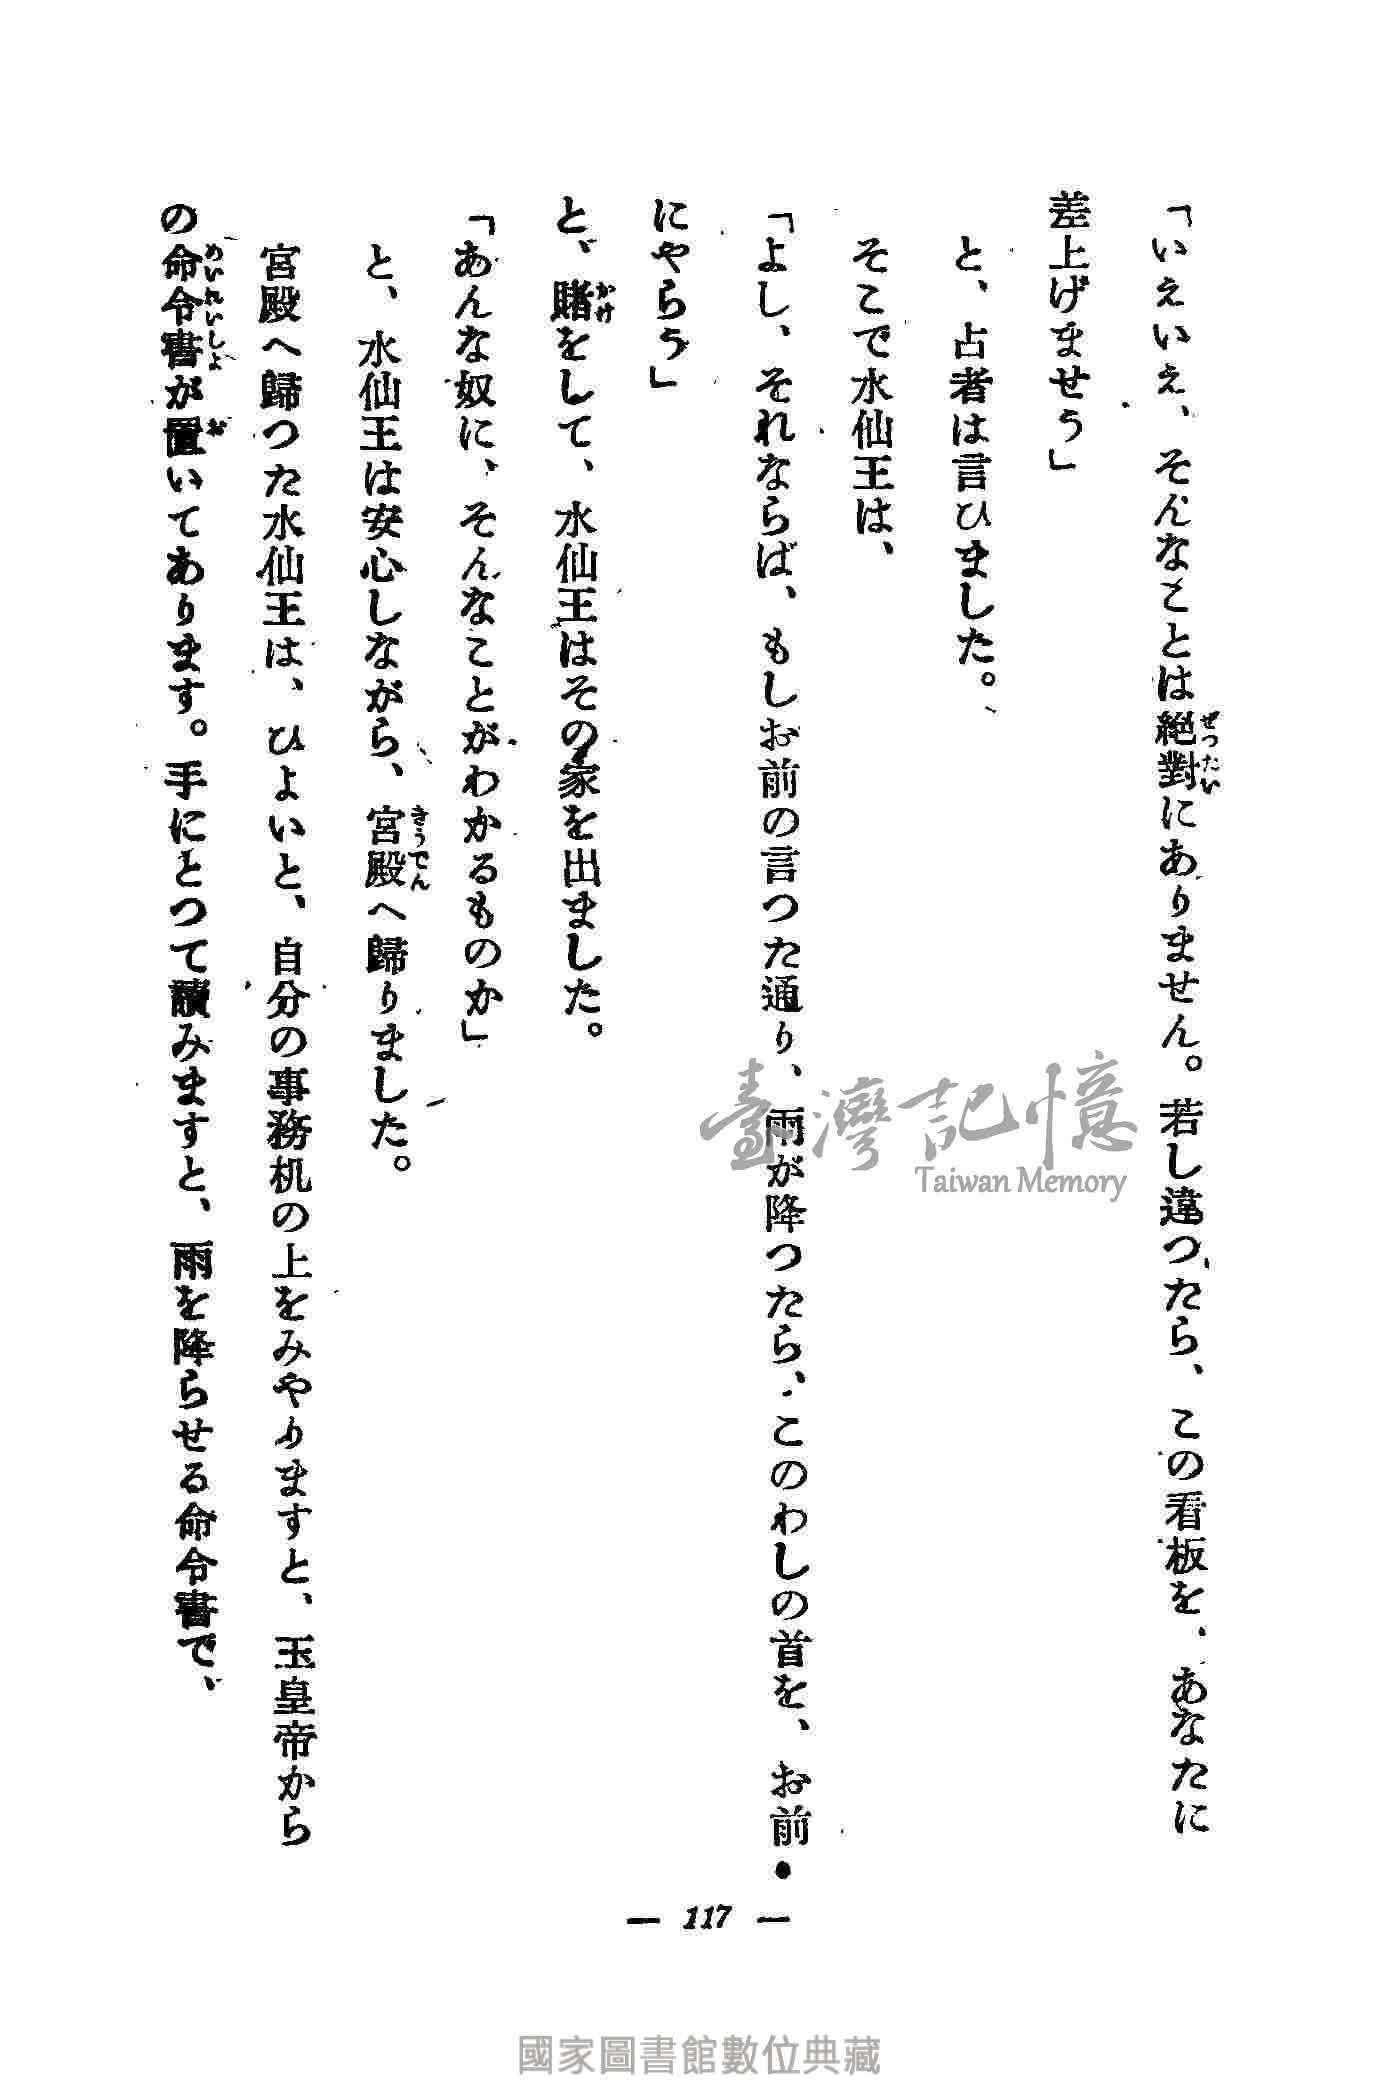 「いえいえ、そんなことは絶對にありません。若し違つたら、この看板を、あなたに
差上げませう」
と、占者は言ひました。
そこで水仙王は、
「よし、それならば、もしお前の言つた通り、雨が降つたら、このわしの首を、お前
にやらう」
と、賭をして、水仙王はその家を出ました。
「あんな奴に、そんなことがわかるものか」
と、水仙王は安心しながら、宮殿へ歸りました。
宮殿へ歸つた水仙王は、ひよいと、自分の事務机の上をみやりますと、玉皇帝から
の命令書が置いてあります。手にとつて讀みますと、雨を降らせる命令書で、
ぜつたい
かけ
きうでん
めいれいしよ
お
臺灣記憶
Taiwan Memory
— 117 —
國家圖書館數位典藏